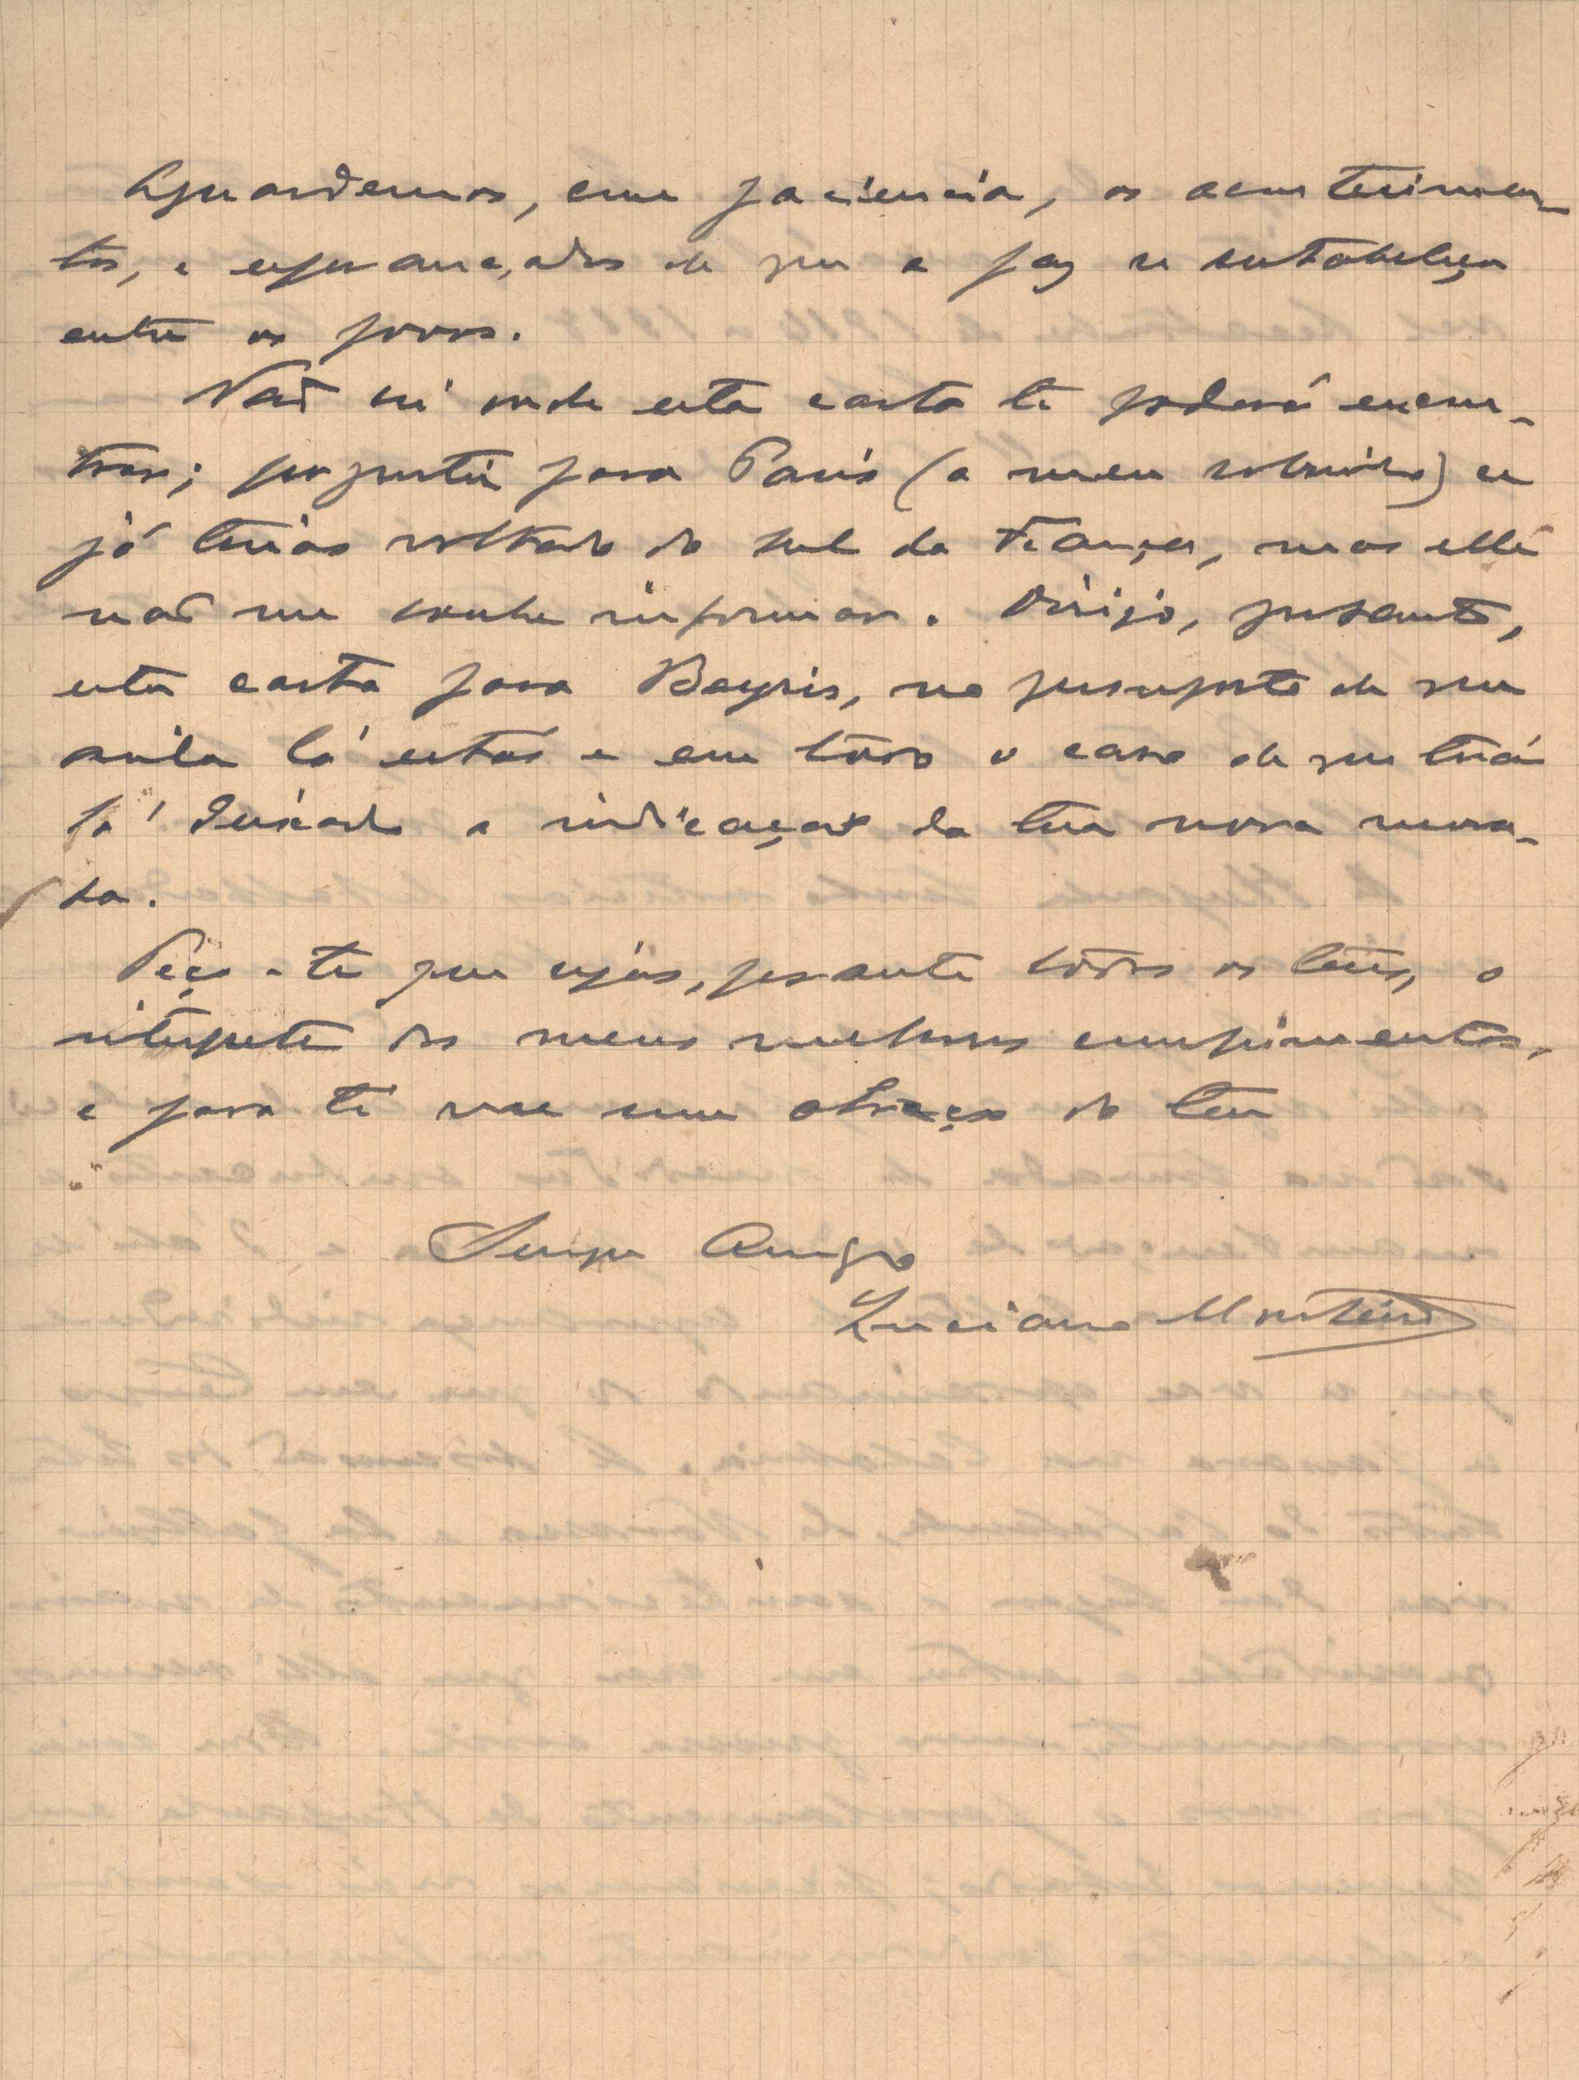 Aguardemos, com paciencia, os acontecimen-
tos, e esperançados de que a paz se restabeleça
entre os povos.
Naõ sei onde esta carta te poderá encon-
trar; perguntei para Paris (a meu sobrinho) se
já terias voltado do sul da França, mas elle
naõ me soube informar. Dirijo, portanto,
esta carta para Beyris, no presuposto de que
ainda lá estás e em todo o caso de que terás
lá deixado a indicaçaõ da tua nova mora-
da.
Peço-te que sejas, perante todos os teus, o
interprete dos meus melhores cumprimentos,
e para ti vae um abraço do teu
Sempre Amigo
Luciano Monteiro